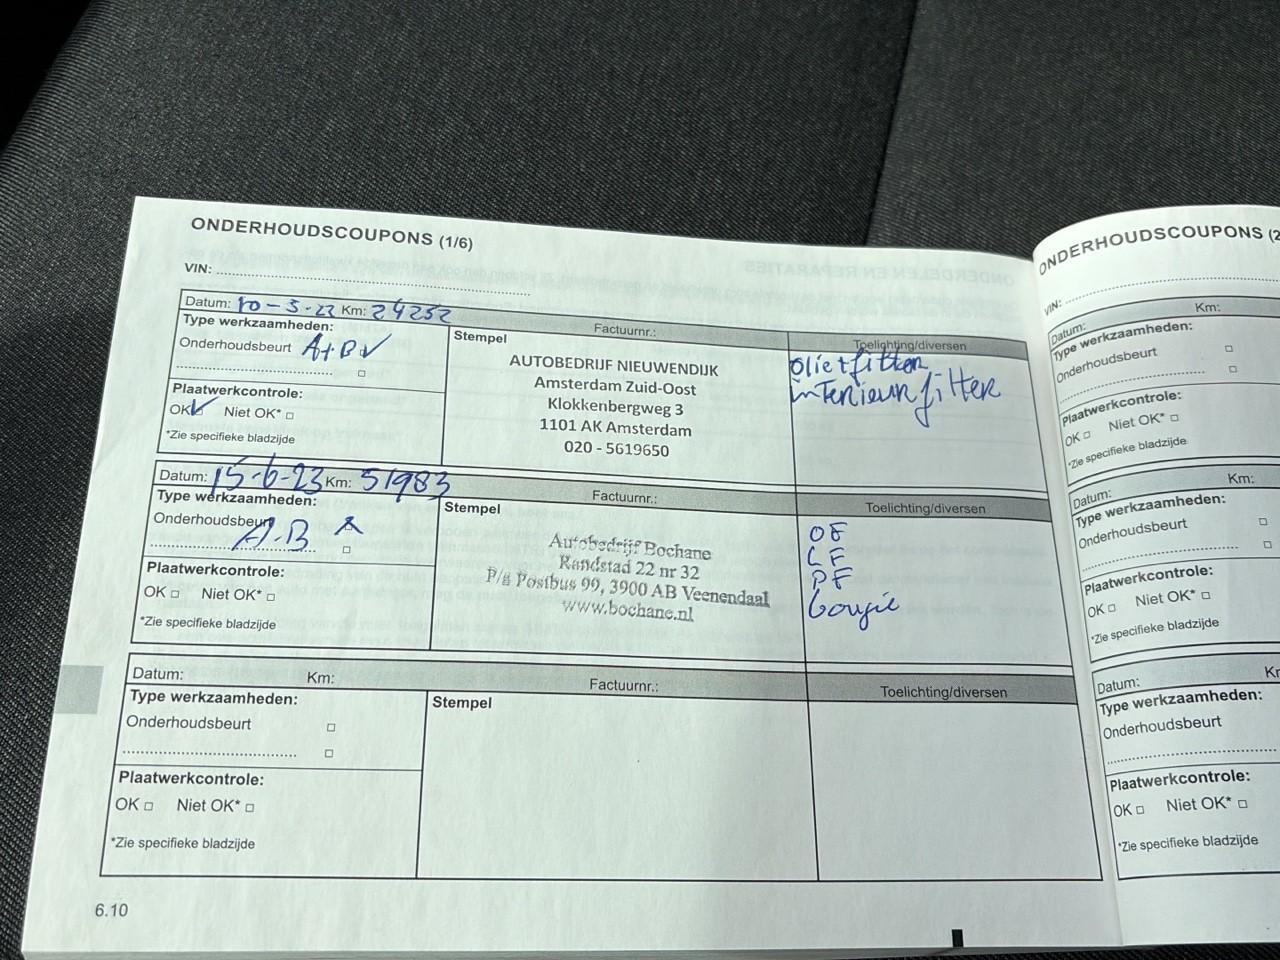 ONDERHOUDSCOUPONS (1/6)
VIN:
Datum: 10-5-22 Km: 24252 Factuurnr.: Toelichting/diversen
Type werkzaamheden:
Onderhoudsbeurt A+B
Plaatwerkcontrole:
OK Niet OK*
*Zie specifieke bladzijde
Stempel
AUTOBEDRIJF NIEUWENDIJK
Amsterdam Zuid-Oost
Klokkenbergweg 3
1101 AK Amsterdam
020 - 5619650
olie+filter
interieurfilter
Datum: 15-6-23 Km: 51983 Factuurnr.: Toelichting/diversen
Type werkzaamheden:
Onderhoudsbeurt
A-B
Plaatwerkcontrole:
OK Niet OK*
*Zie specifieke bladzijde
Stempel
Autobedrijf Bochane
Randstad 22 nr 32
P/a Postbus 99, 3900 AB Veenendaal
www.bochane.nl
OF
LF
PF
bougie
Datum: Km: Factuurnr.: Toelichting/diversen
Type werkzaamheden:
Onderhoudsbeurt
Plaatwerkcontrole:
OK Niet OK*
*Zie specifieke bladzijde
Stempel
6.10
ONDERHOUDSCOUPONS (2
VIN:
Datum: Km:
Type werkzaamheden:
Onderhoudsbeurt
Plaatwerkcontrole:
OK Niet OK*
*Zie specifieke bladzijde
Datum: Km:
Type werkzaamheden:
Onderhoudsbeurt
Plaatwerkcontrole:
OK Niet OK*
*Zie specifieke bladzijde
Datum:
Type werkzaamheden:
Onderhoudsbeurt
Plaatwerkcontrole:
OK Niet OK*
*Zie specifieke bladzijde